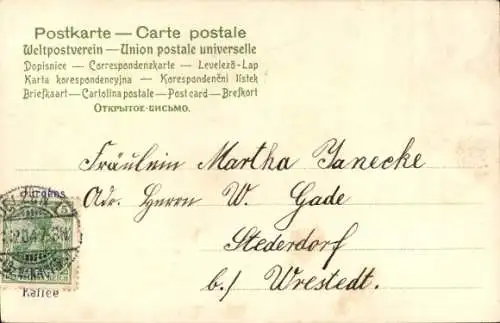 Postkarte — Carte postale
Weltpostverein — Union postale universelle
Dopisnice — Correspondenzkarte — Levelező-Lap
Karta korespondencyjna — Korespondenční lístek
Briefkaart — Cartolina postale — Post card — Brefkort
Открытое-письмо.
Fräulein Martha Janecke
Adr. Herrn W. Gade
Stederdorf
b./ Wrestedt.
Jürgens
Kaffee